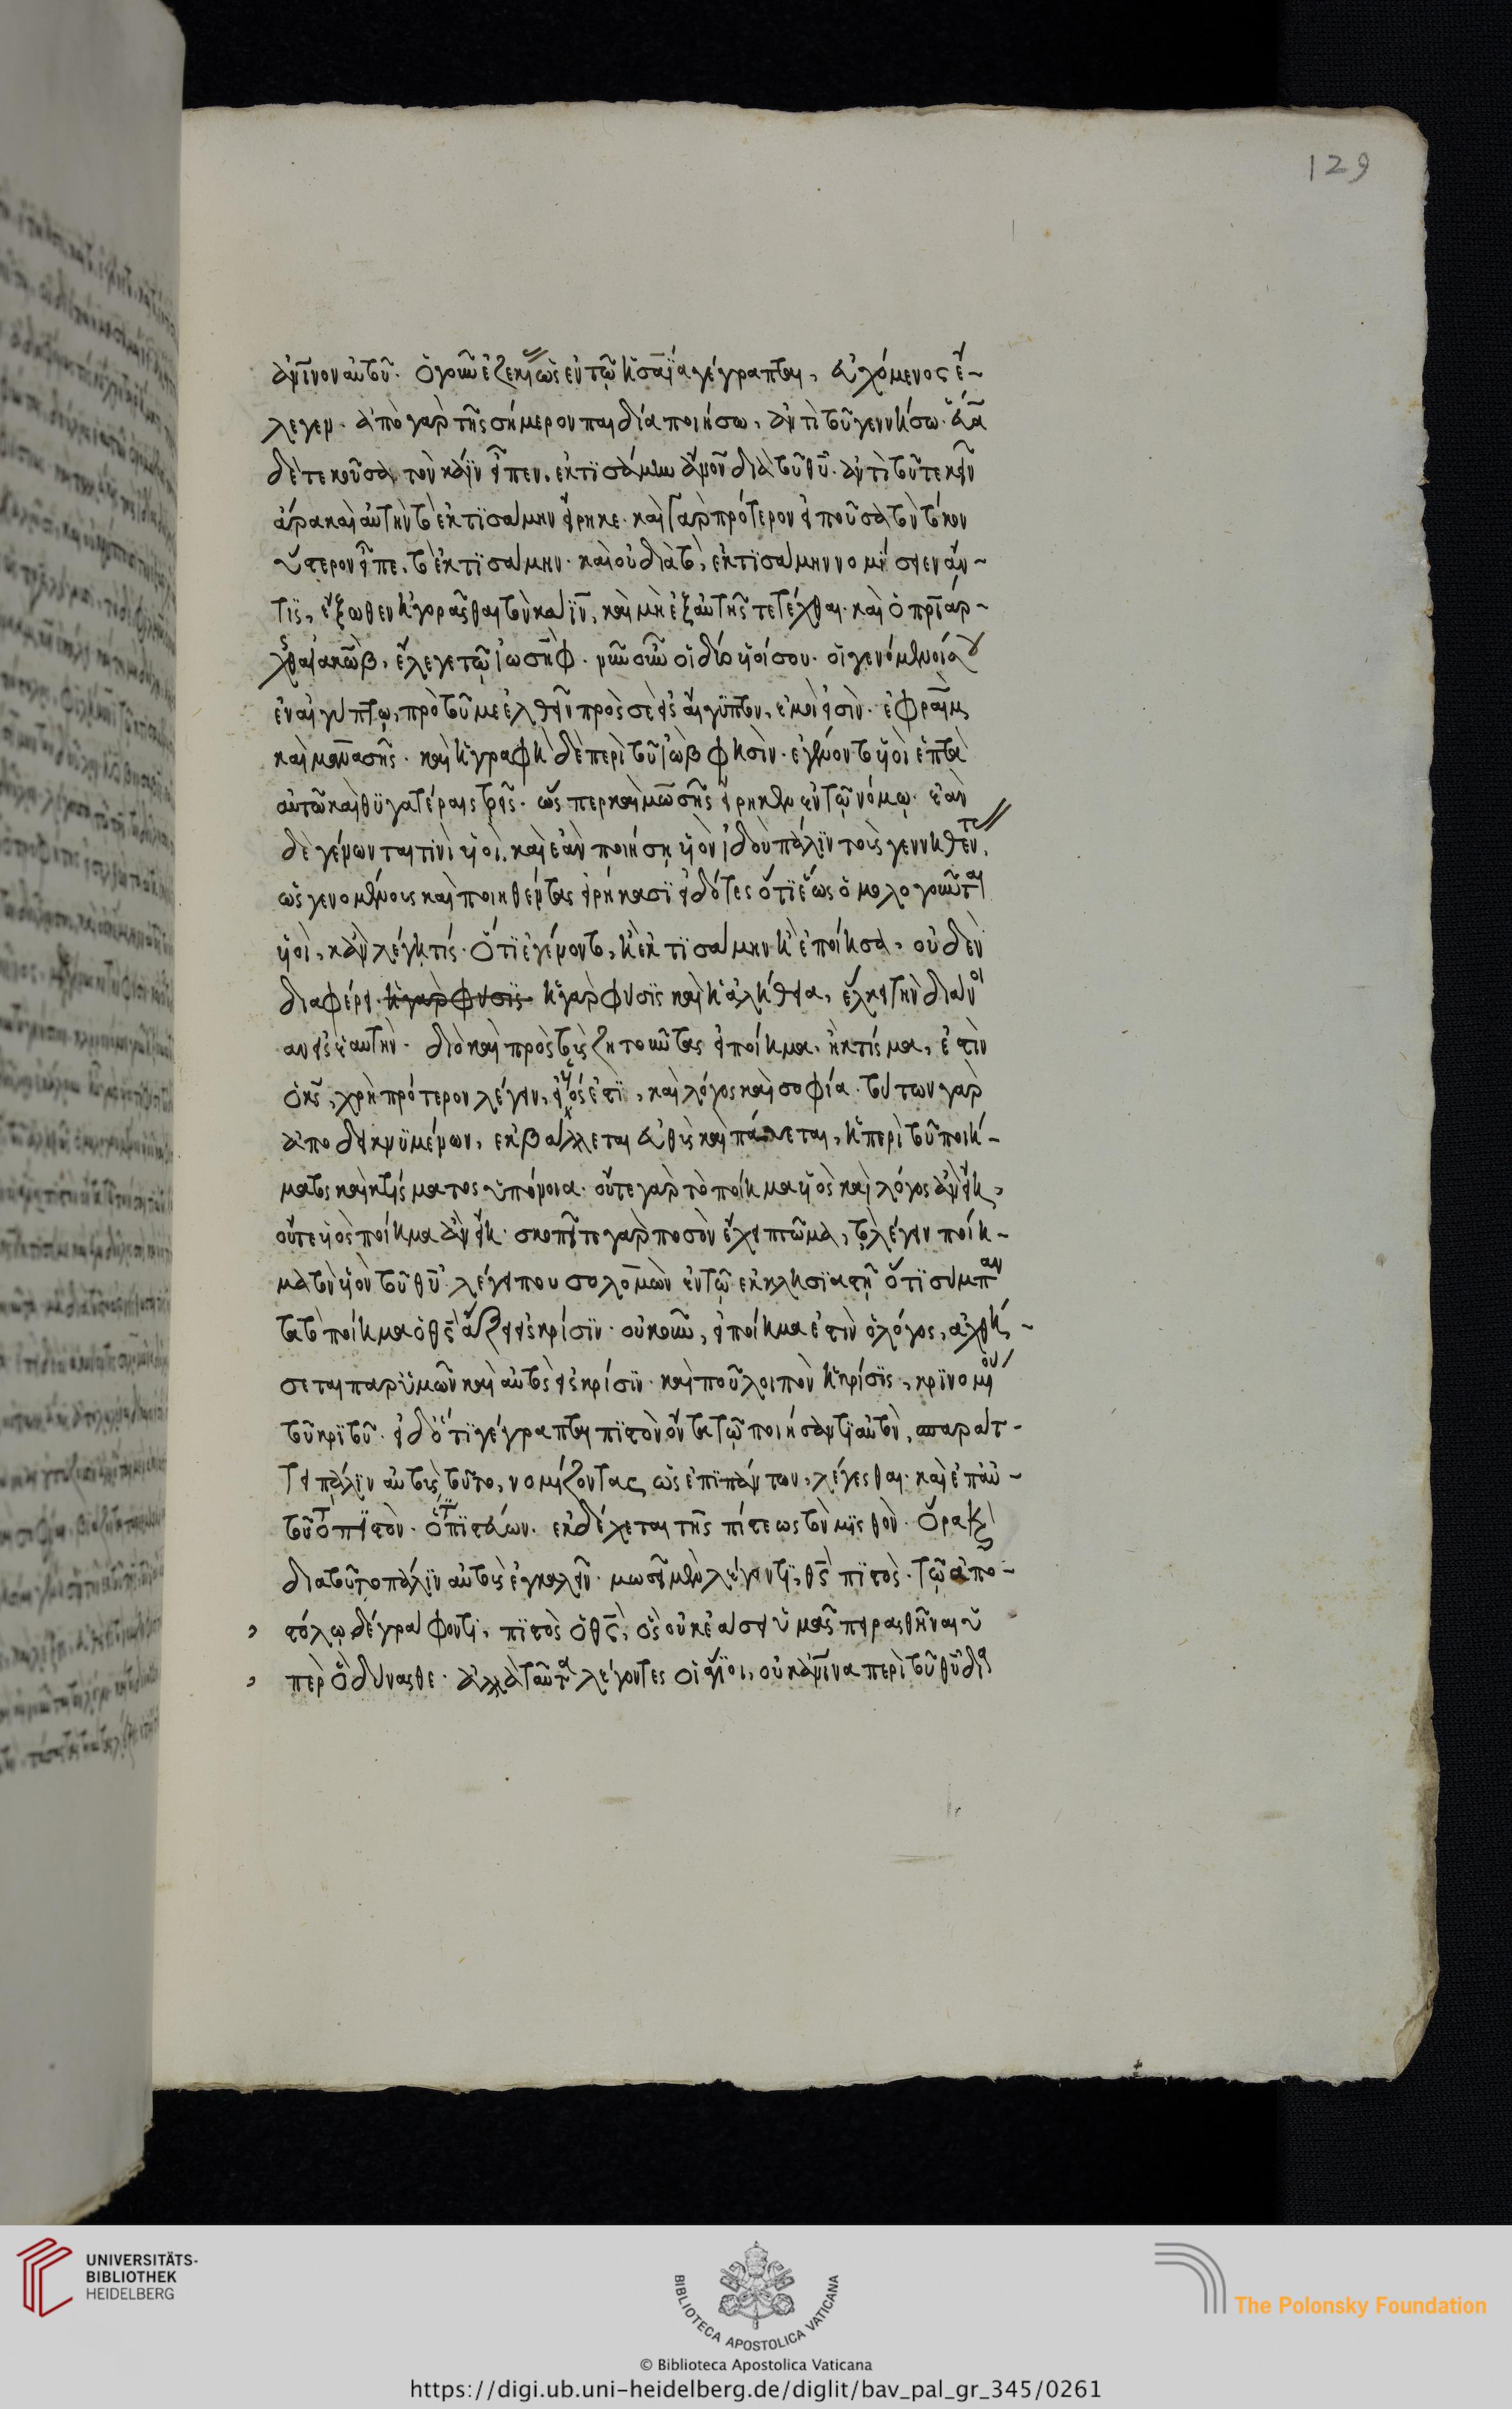 129
ἀμεῖνον αὐτοῦ. ὁ γοῦν ἐζεκίας ὡς ἐν τῷ ἡσαΐα γέγραπται, εὐχόμενος ἔ-
λεγεν. ἀπὸ γὰρ τῆς σήμερον παιδία ποιήσω, ἀντὶ τοῦ γεννήσω.
δὲ τεκοῦσα τὸν κάϊν εἶπεν, ἐκτϊσάμην ἄνον διὰ τοῦ θῦ. ἀντὶ τοῦ τεκεῖν
ἄρα καὶ αὐτὴ τὸ ἐκτϊσάμην εἴρηκε. καὶ γὰρ πρότερον εἰποῦσα τὸ τίκον
ὕστερον εἶπε, τὸ ἐκτϊσάμην. καὶ οὐ διὰ τὸ, ἐκτϊσάμην νομίσειεν ἄν
τϊς, ἔξωθεν ἠγορᾶσθαι τὸν κάϊν, καὶ μὴ ἐξ αὐτῆς τετέχθαι. καὶ ὁ πρϊαρ-
χης ἰακὼβ, ἔλεγε τῷ ἰωσὴφ. νῦν οὖν οἱ δύο υἱοί σου. οἱ γενόμενοί σοι
ἐν αἰγύπτῳ, πρὸ τοῦ με ἐλθεῖν πρὸς σὲ εἰς αἴγϋπτον, ἐμοὶ εἰσὶν. ἐφραῒμ
καὶ μανασσῆς. καὶ ἡ γραφὴ δὲ περὶ τοῦ ἰὼβ φησὶν. ἐγένοντο υἱοὶ ἑπτὰ
αὐτῶ καὶ θϋγατέραις τρεῖς. ὥσπερ καὶ μωσῆς εἴρηκεν ἐν τῷ νόμῳ. ἐὰν
δὲ γένωνται τινὶ υἱοὶ. καὶ ἐὰν ποιήσῃ υἱὸν ἰδοὺ πάλϊν τοὺς γεννηθέντας,
ὡς γενομένους καὶ ποιηθέντας εἰρήκασϊ εἰδότες ὅτϊ ἕως ὁμολογοῦνται
υἱοὶ, κἂν λέγη τίς. ὅτϊ ἐγένοντο, ἢ ἐκτϊσάμην ἢ ἐποίησα, οὐδὲν
διαφέρει. ἡ γὰρ φύσϊς ἡ γὰρ φύσϊς καὶ ἡ ἀλήθεια, ἕλκει τὴν διάνοι
αν εἰς ἑαυτὴν. διὸ καὶ πρὸς τοὺς ζητοῦντας εἰ ποίημα, ἢ κτίσμα, ἐστὶν
ὁ κς, χρὴ πρότερον λέγειν, εἰ υἱός ἐστϊ, καὶ λόγος καὶ σοφία. τούτων γὰρ
ἀποδεικνϋμένων, ἐκβάλλεται εὐθὺς καὶ παύεται, ἡ περὶ τοῦ ποιή-
ματος καὶ κτίσματος ὑπόνοια. οὔτε γὰρ τὸ ποίημα υἱὸς καὶ λόγος ἂν εἴη,
οὔτε υἱὸς ποίημα ἂν εἴη. σκοπεῖτε γὰρ πόσον ἔχει πτῶμα, τὸ λέγειν ποίη-
μα τὸν υἱὸν τοῦ θῦ. λέγει που σολομὼν ἐν τῷ ἐκκλησϊαστῇ ὅτϊ σύμπαν
τὸ ποίημα ὁ θς ἄξει εἰς κρίσϊν. οὐκοῦν, εἰ ποίημα ἐστὶν ὁ λόγος, ἀχθή-
σεται παρ' ὑμῶν καὶ αὐτὸς εἰς κρίσϊν. καὶ ποῦ λοιπὸν ἡ κρίσϊς, κρϊνομένου
τοῦ κρϊτοῦ. εἰ δ' ὅτϊ γέγραπται πϊστὸν ὄντα τῷ ποιήσαντϊ αὐτὸν, ταρατ-
τει πάλϊν αὐτοὺς τοῦτο, νομίζοντας ὡς ἐπὶ πάντων, λέγεσθαι. καὶ ἐπ' αὐ-
τοῦ τὸ πϊστὸν. ὅτι πϊστεύων. ἐκδέχεται τῆς πίστεως τὸν μϊσθὸν. ὥρα καὶ
διὰ τοῦτο πάλϊν αὐτοὺς ἐγκαλεῖν. μωσεῖ μὲν λέγοντϊ, θς πϊστὸς. τῷ ἀπο-
στόλῳ δὲ γράφοντϊ, πϊστὸς ὁ θς, ὃς οὐκ ἐάσει ὑμᾶς πειρασθῆναι ὑ
περ ὃ δύνασθε. ἀλλὰ ταῦτα λέγοντες οἱ ἅγϊοι, οὐκ ἀνθρώπινα περὶ τοῦ θῦ δι
UNIVERSITÄTS-
BIBLIOTHEK
HEIDELBERG
BIBLIOTECA APOSTOLICA VATICANA
The Polonsky Foundation
© Biblioteca Apostolica Vaticana
https://digi.ub.uni-heidelberg.de/diglit/bav_pal_gr_345/0261